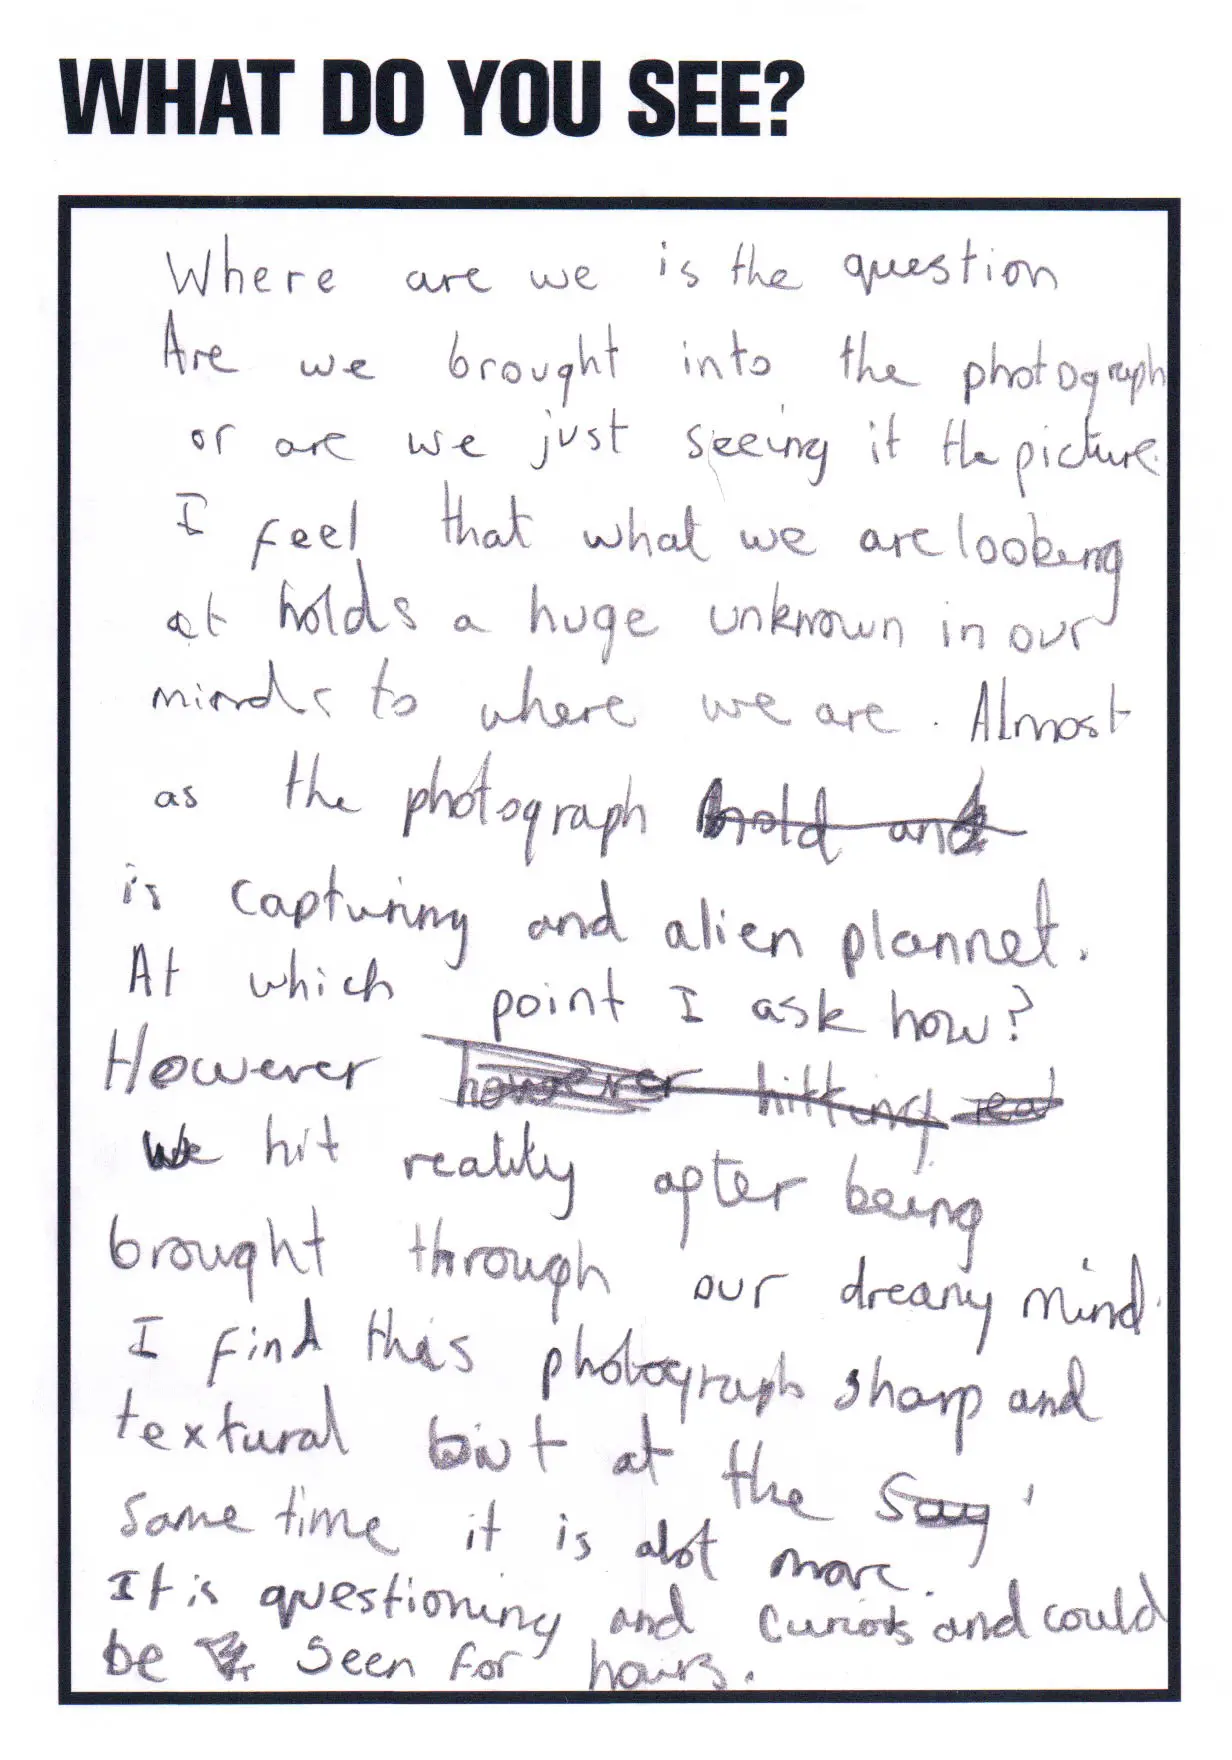 WHAT DO YOU SEE?
Where are we is the question
Are we brought into the photograph
or are we just seeing it the picture.
I feel that what we are looking
at holds a huge unknown in our
minds to where we are. Almost
as the photograph hold and
is capturing and alien plannet.
At which point I ask how?
However however hitting reat
we hit reality after being
brought through our dreamy mind.
I find this photograph sharp and
textural but at the say
same time it is alot more.
It is questioning and curiots and could
be seen for hours.